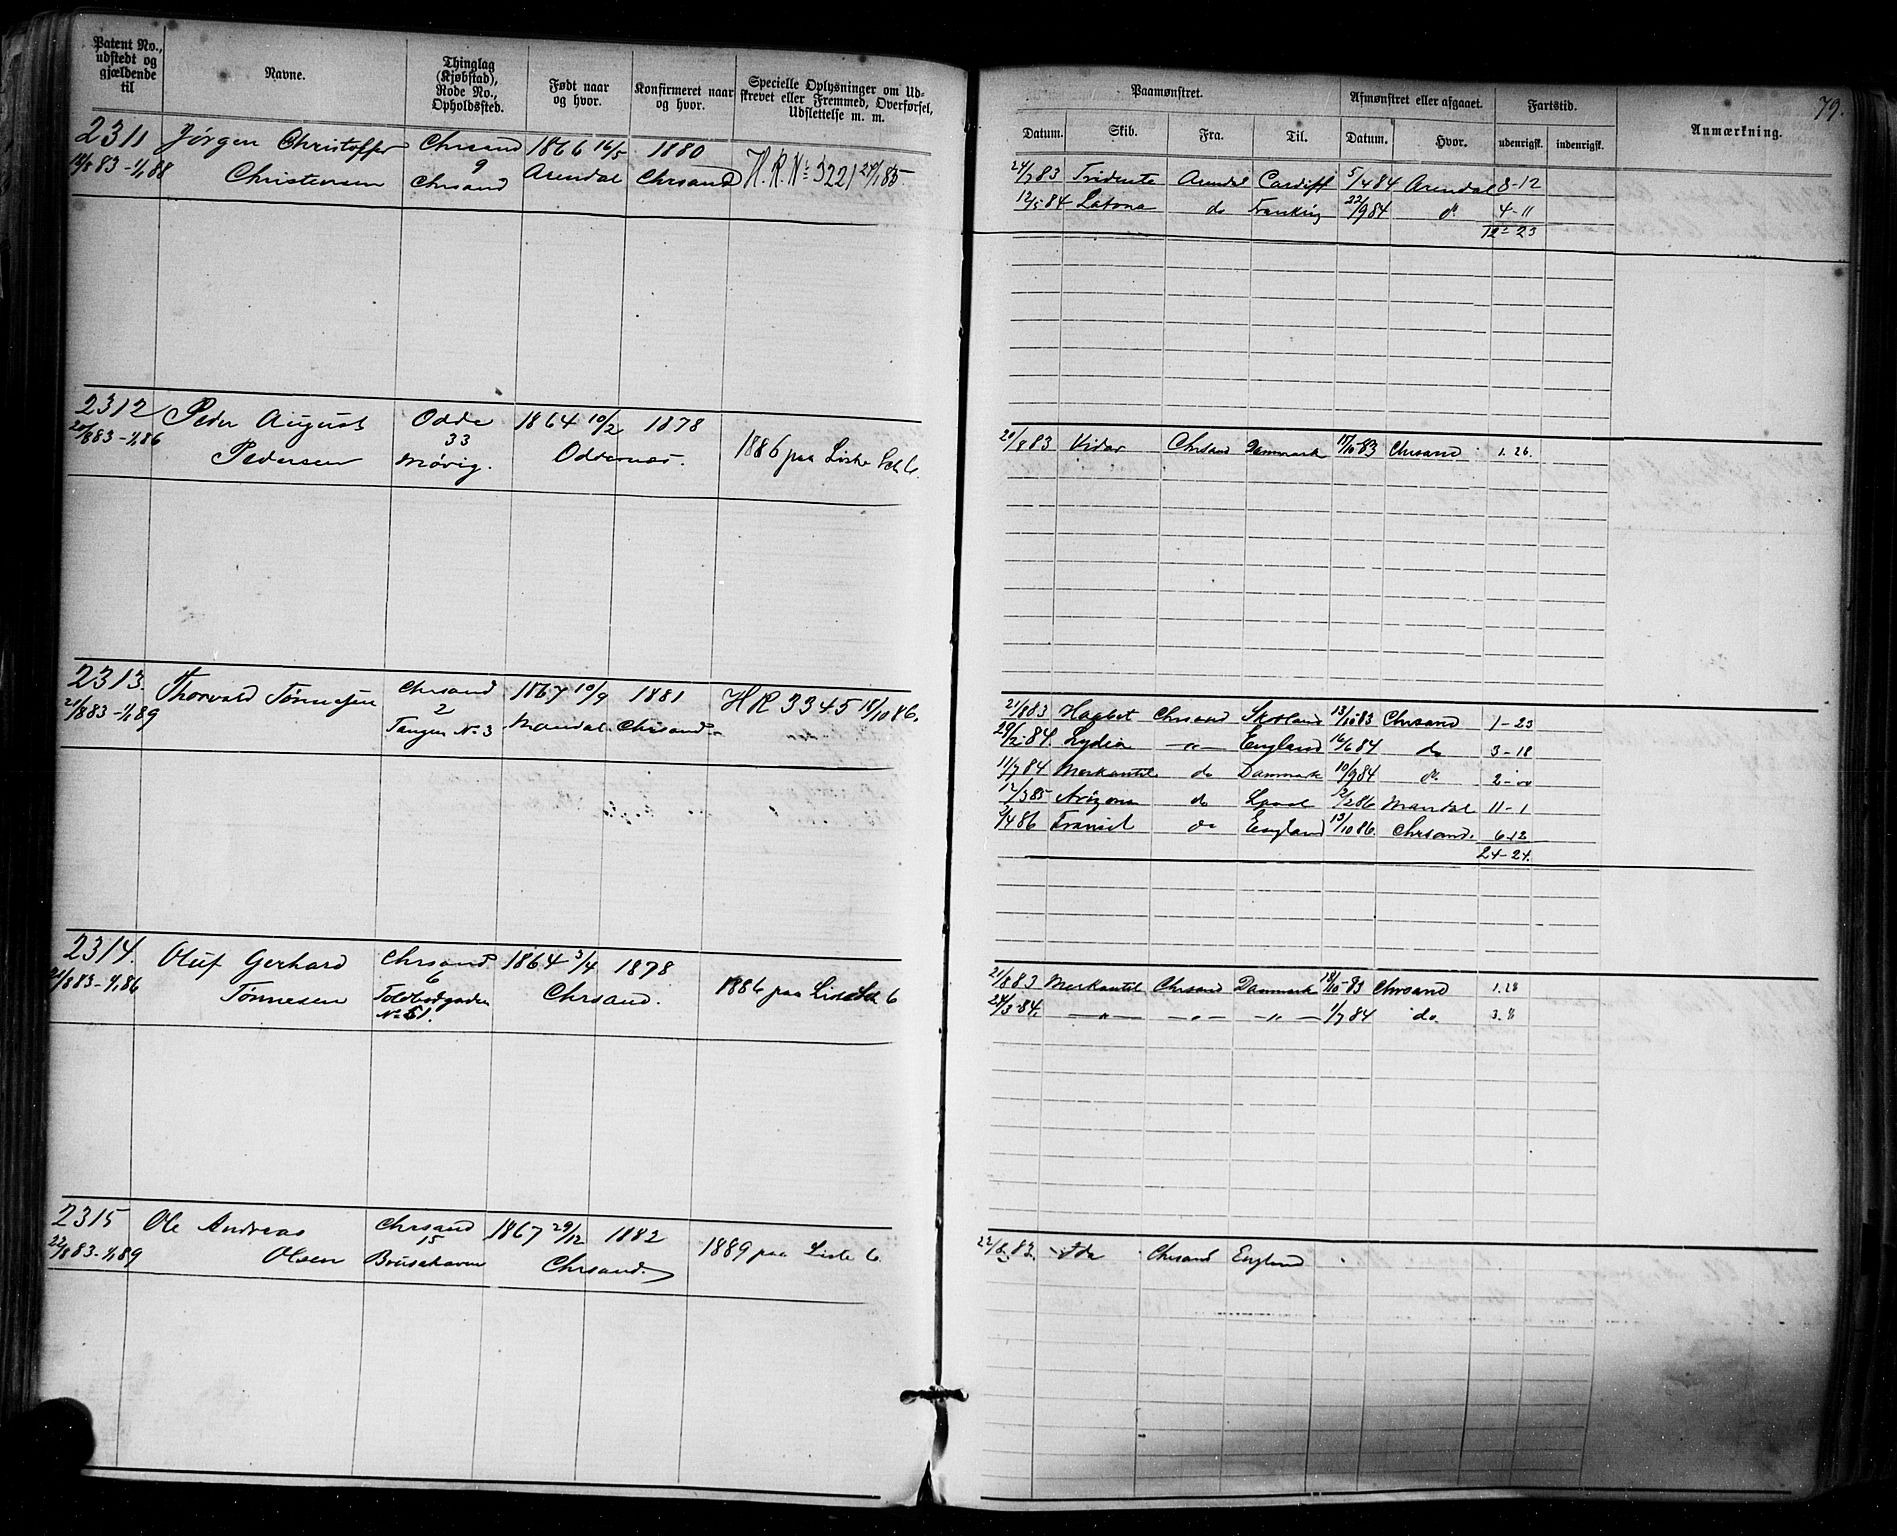 Patent No., udstedt og gjældende til
Navne.
Thinglag (Kjøbstad), Rode No., Opholdssted.
Født naar og hvor.
Konfirmeret naar og hvor.
Specielle Oplysninger om Udskrevet eller Fremmed, Overførsel, Udslettelse m. m.
Paamønstret.
Afmønstret eller afgaaet.
Fartstid.
79.
Datum. Skib. Fra. Til. Datum. Hvor. udenrigsk. indenrigsk.
Anmærkning.
2311 Jørgen Christoffer Chrsand 1866 16/5 1880
Christensen 9 Chrsand Arendal Chrsand H. R. No 3221
83 Tridente Arendal Cardiff 5/4 84 Arendal 8-12
12/5 84 Latona do 22/9 84 do 4-11
12-23
2312 Peder August Odde 1864 10/2 1878
83-1/1 86 Pedersen 33 Møvig. Oddernes. 1886 paa Liste Lit 6.
20/8 83 Vidar Chrsand Danmark 17/10 83 Chrsand 1. 26.
2313. Thorvald Tønnesen Chrsand 1867 10/9 1881 H R 3345 18/10 86.
21/8 83-1/1 89 2 Tangen No 3 Mandal. Chrsand.
21/8 83 Chrsand Skotland 13/10 83 Chrsand 1-23
29/2 84 Lydia -"- England 16/6 84 do 3-18
11/7 84 Merkantil do Danmark 10/9 84 do
12/3 85 Arizona do 86 Mandal 11-1
2/4 86 Transit do England 13/10 86. Chrsand. 6-12
24-24.
2314. Oluf Gerhard Chrsand 1864 3/4 1878
21/8 83-1/1 86 Tønnesen 6 Toldbodgaden No 51. Chrsand. 1886 paa Liste Lit 6
21/8 83 Merkantil Chrsand Danmark 18/10 83 Chrsand 1. 28
84. -"- -"- -"- 1/7 84 do. 3. 8
2315 Ole Andreas Chrsand 1867 29/12 1882
22/8 83-1/1 89 Olsen 15 Chrsand. 1889 paa Liste 6.
22/8 83. Ida Chrsand England